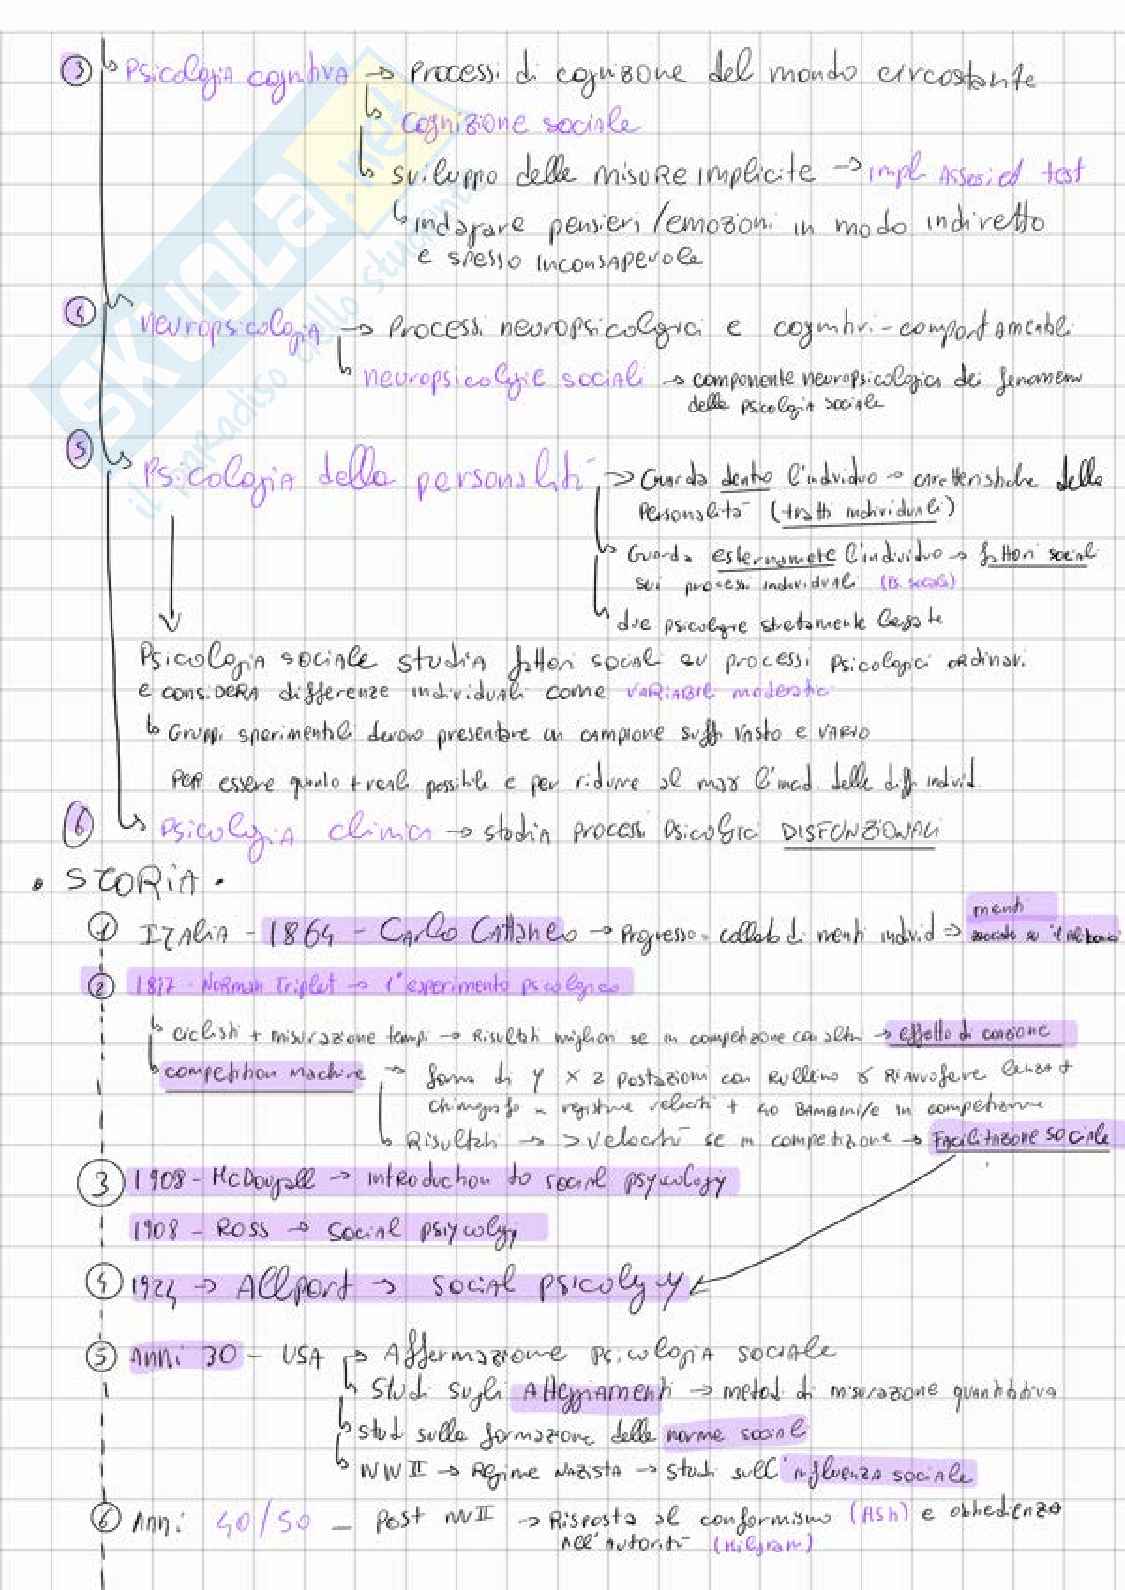 ③ Psicologia cognitiva → Processi di cognizione del mondo circostante
↳ cognizione sociale
↳ sviluppo delle misure implicite → impl Associed test
↳ indagare pensieri/emozioni in modo indiretto
e spesso inconsapevole
④ Neuropsicologia → Processi neuropsicologici e cognitivi-comportamentali
↳ neuropsicologie sociali → componente neuropsicologica dei fenomeni
della psicologia sociale
⑤ Psicologia della personalità → Guarda dentro l'individuo → caratteristiche della
Personalità (tratti individuali)
↳ Guarda esternamente l'individuo → fattori sociali
sui processi individuali (Ps. sociale)
↳ due psicologie strettamente legate
Psicologia sociale studia fattori sociali su processi psicologici ordinari
e considera differenze individuali come variabili moderatrici
↳ Gruppi sperimentali devono presentare un campione suff vasto e vario
per essere quanto + reali possibile e per ridurre al max l'incid. delle diff individ.
⑥ Psicologia clinica → studia processi psicologici DISFUNZIONALI
• STORIA •
① Italia - 1864 - Carlo Cattaneo → Progresso = collab di menti individ → menti
associate
② Norman Triplet → 1° esperimento psicologico
↳ ciclisti + misurazione tempi → Risultati migliori se in competizione con altri → effetto di coazione
↳ competition machine → forma di Y x 2 postazioni con Rullino x Riavvolgere lenza +
chimografo x registrare velocità + 40 Bambini/e in competizione
↳ Risultati → > velocità se in competizione → Facilitazione sociale
③ 1908 - McDougall → introduction to social psycology
1908 - Ross → social psiycolgy
④ 1924 → Allport → social psicology
⑤ Anni 30 - USA → Affermazione psicologia sociale
↳ Studi sugli Atteggiamenti → metodi di misurazione quantitativa
↳ studi sulla formazione delle norme sociali
↳ WWII → Regime Nazista → studi sull'influenza sociale
⑥ Anni 40/50 - Post WWII → Risposta al conformismo (ASH) e obbedienza
all'autorità (Milgram)
SKUOLA.net
il paradiso dello studente